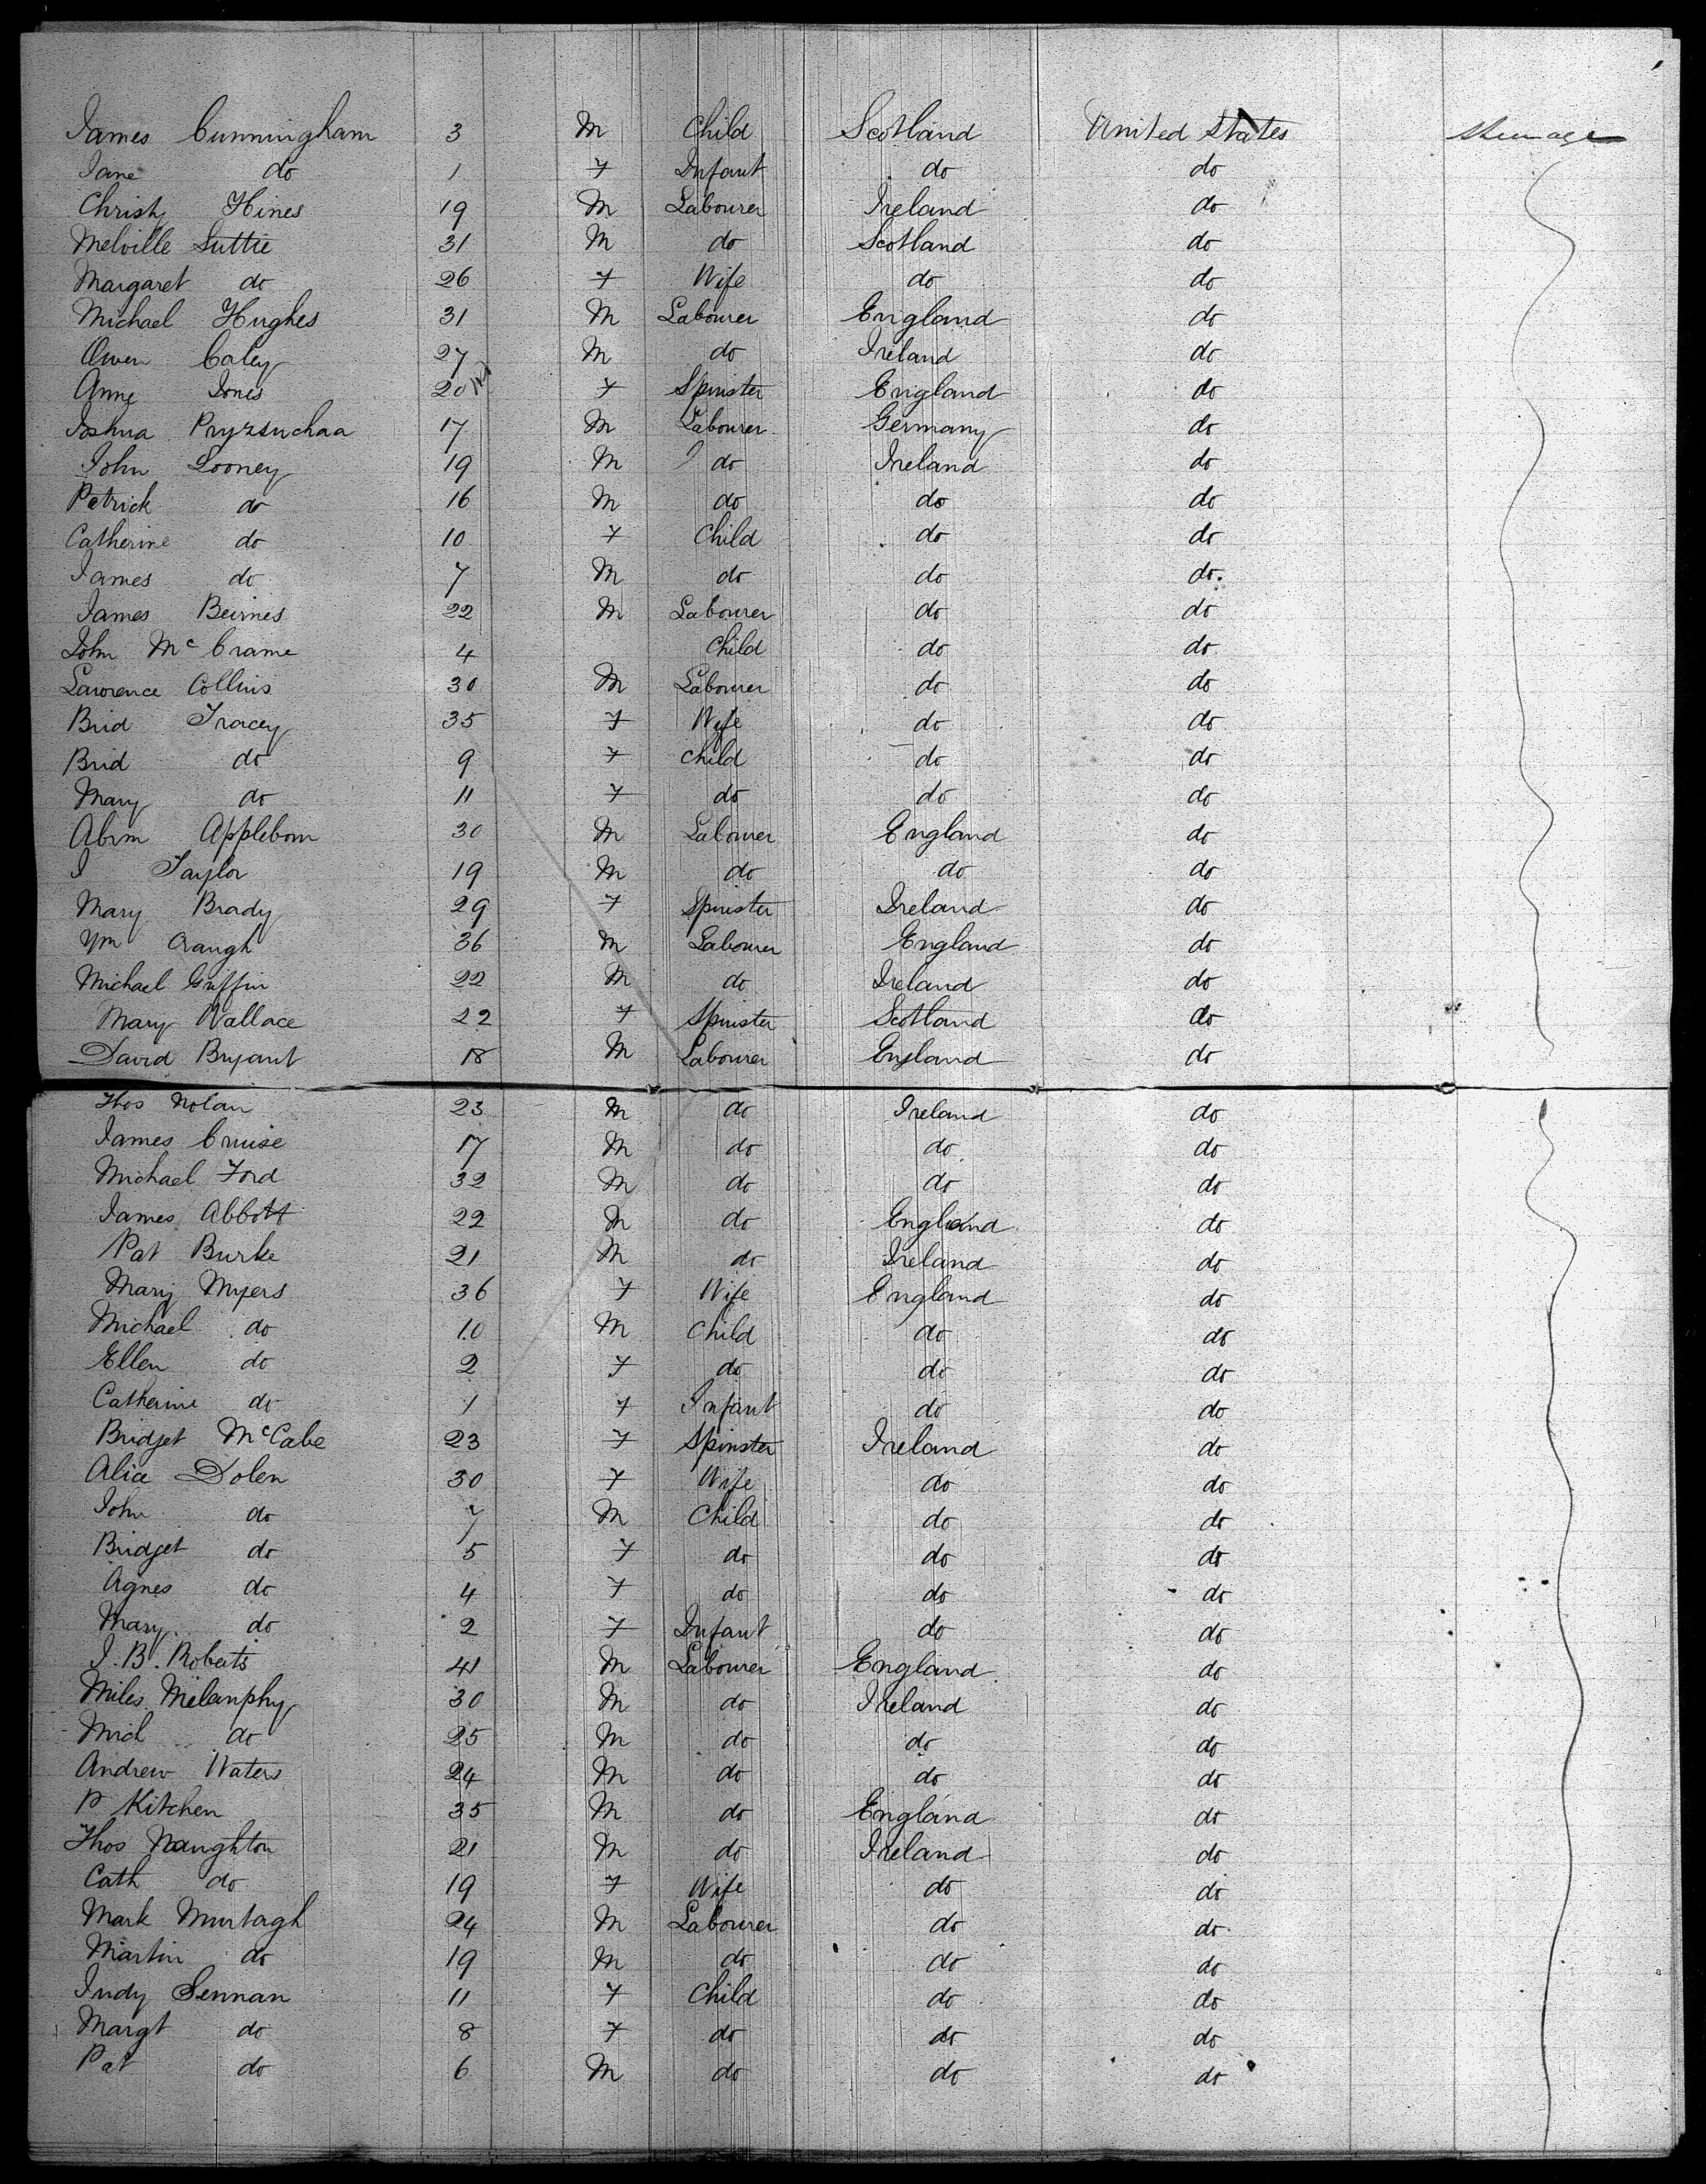 James Cunningham 3 M Child Scotland United States Steerage
Jane do 1 F Infant do do
Christy Hines 19 M Labourer Ireland do
Melville Suttie 31 M do Scotland do
Margaret do 26 F Wife do do
Michael Hughes 31 M Labourer England do
Owen Caley 27 M do Ireland do
Anne Jones 20 F Spinster England do
Joshua Pryzsuchaa 17 M Labourer Germany do
John Looney 19 M do Ireland do
Patrick do 16 M do do do
Catherine do 10 F Child do do
James do 7 M do do do
James Beirnes 22 M Labourer do do
John McCrame 4 Child do do
Lawrence Collins 30 M Labourer do do
Brid Tracey 35 F Wife do do
Brid do 9 F Child do do
Mary do 11 F do do do
Abrm Applebom 30 M Labourer England do
J Taylor 19 M do do do
Mary Brady 29 F Spinster Ireland do
Wm Craugh 36 M Labourer England do
Michael Griffin 22 M do Ireland do
Mary Wallace 22 F Spinster Scotland do
David Bryant 18 M Labourer England do
Thos Nolan 23 M do Ireland do
James Cruise 17 M do do do
Michael Ford 32 M do do do
James Abbott 22 M do England do
Pat Burke 21 M do Ireland do
Mary Myers 36 F Wife England do
Michael do 10 M Child do do
Ellen do 2 F do do do
Catherine do 1 F Infant do do
Bridget McCabe 23 F Spinster Ireland do
Alice Dolen 30 F Wife do do
John do 7 M Child do do
Bridget do 5 F do do do
Agnes do 4 F do do do
Mary do 2 F Infant do do
J. B. Roberts 41 M Labourer England do
Miles Melanphy 30 M do Ireland do
Mich do 25 M do do do
Andrew Waters 24 M do do do
P Kitchen 35 M do England do
Thos Naughton 21 M do Ireland do
Cath do 19 F Wife do do
Mark Murtagh 24 M Labourer do do
Martin do 19 M do do do
Judy Sennan 11 F Child do do
Margt do 8 F do do do
Pat do 6 M do do do